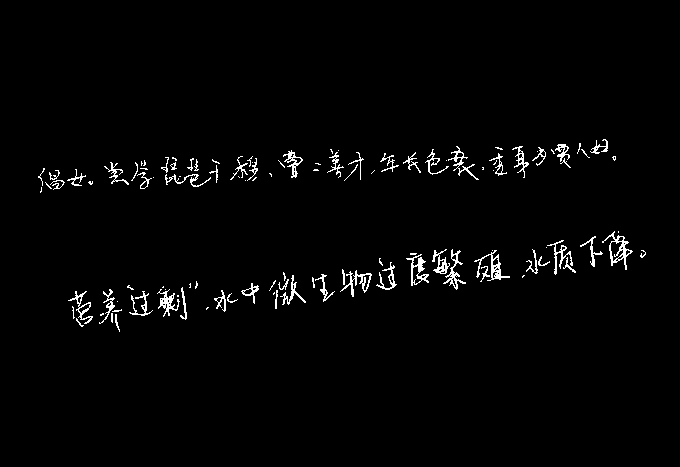 倡女。尝学琵琶于穆、曹二善才，年长色衰，委身为贾人妇。
营养过剩”，水中微生物过度繁殖，水质下降。